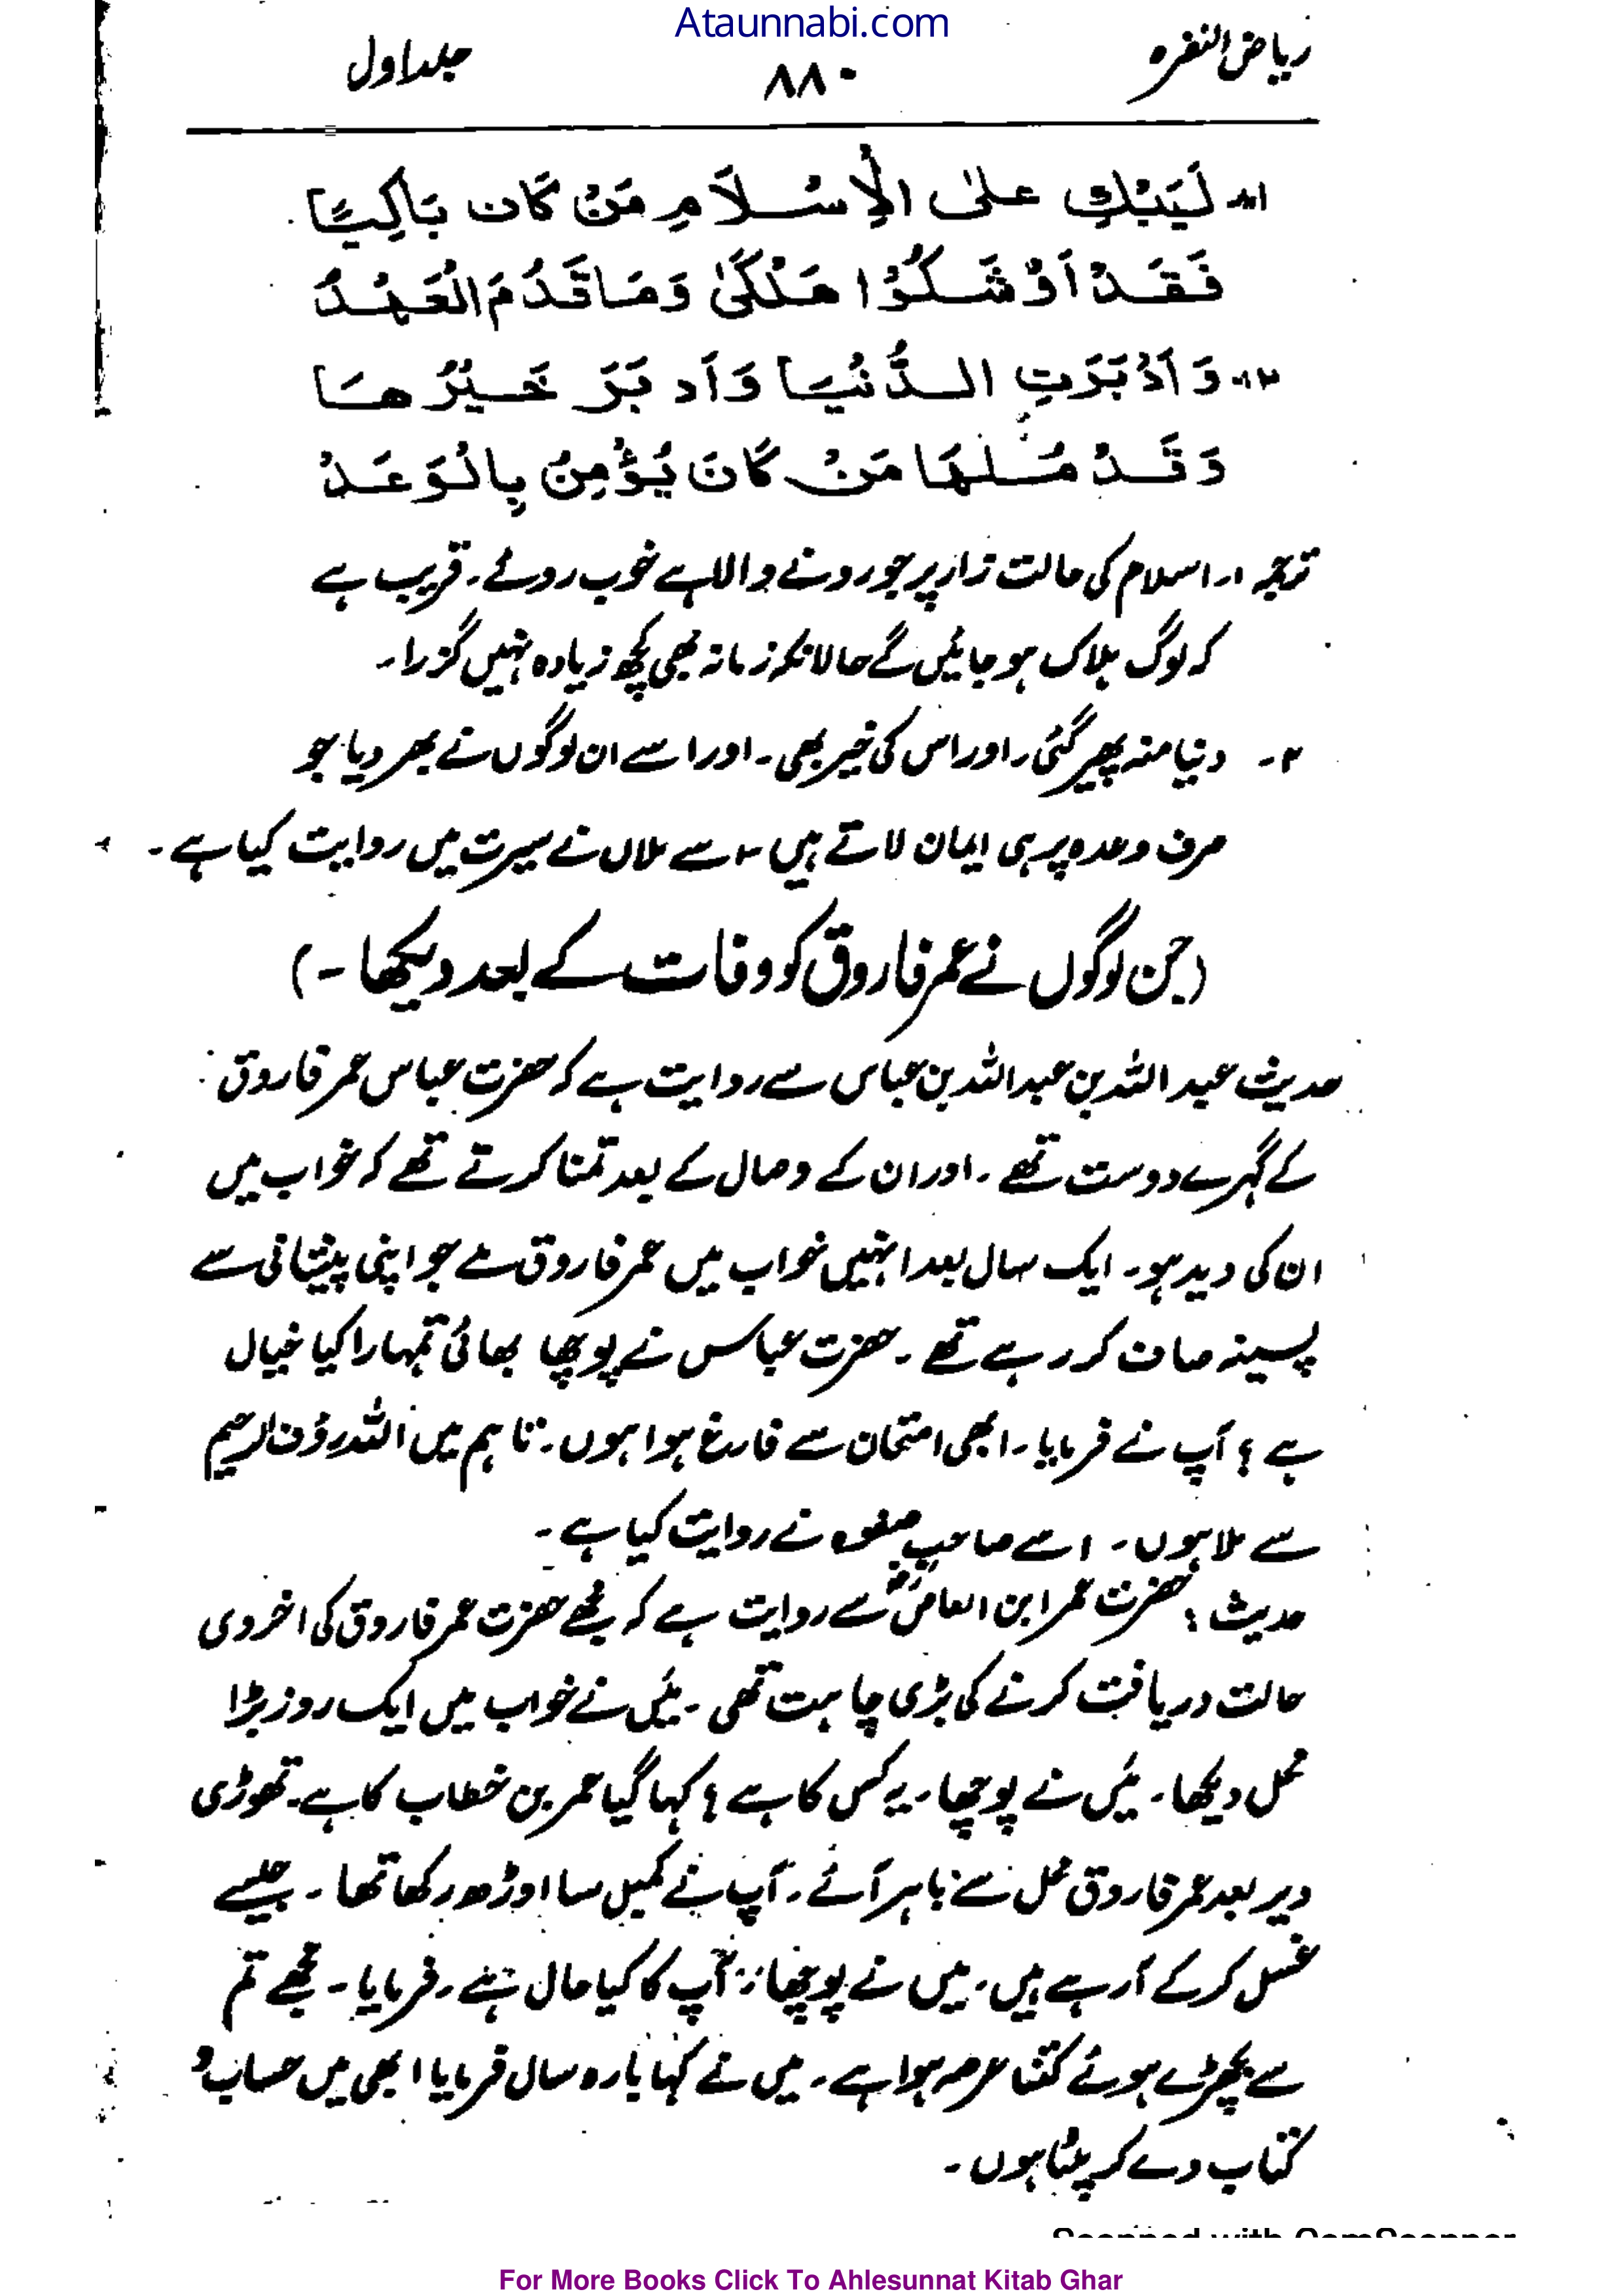 Ataunnabi.com
ریاض النضرہ ۸۸۰ جلد اول
۱۔ لَيَبْكِ عَلَى الْإِسْلَامِ مَنْ كَانَ بَاكِيًا
فَقَدْ اَوْشَكُوْا هَلْكٰى وَمَا قَدُمَ الْعَهْدُ
۲۔ وَاَدْبَرَتِ الدُّنْيَا وَاَدبَرَ خَيْرُهَا
وَقَدْ مُلْهَا مَنْ كَانَ يُؤْمِنُ بِالْوَعَدْ
ترجمہ ۱۔ اسلام کی حالت زار پر جو رونے والا ہے خوب روئے۔ قریب ہے
کہ لوگ ہلاک ہو جائیں گے حالانکہ زمانہ بھی کچھ زیادہ نہیں گزرا۔
۲۔ دنیا منہ پھیر گئی۔ اور اس کی خیر بھی۔ اور اسے ان لوگوں نے بھر دیا جو
صرف وعدہ پر ہی ایمان لاتے ہیں ۔ اسے ملاں نے سیرت میں روایت کیا ہے۔
(جن لوگوں نے عمر فاروق کو وفات کے بعد دیکھا۔)
حدیث عبد اللہ بن عبد اللہ بن عباس سے روایت ہے کہ حضرت عباس عمر فاروق
کے گہرے دوست تھے۔ اور ان کے وصال کے بعد تمنا کرتے تھے کہ خواب میں
ان کی دید ہو۔ ایک سال بعد انہیں خواب میں عمر فاروق ملے جو اپنی پیشانی سے
پسینہ صاف کر رہے تھے۔ حضرت عباس نے پوچھا بھائی تمہارا کیا خیال
ہے؟ آپ نے فرمایا۔ ابھی امتحان سے فارغ ہوا ہوں۔ تاہم میں اللہ رؤف الرحیم
سے ملا ہوں۔ اسے صاحب صفوہ نے روایت کیا ہے۔
حدیث؛ حضرت عمر ابن العاصؓ سے روایت ہے کہ مجھے حضرت عمر فاروق کی اخروی
حالت دریافت کرنے کی بڑی چاہت تھی۔ میں نے خواب میں ایک روز بڑا
محل دیکھا۔ میں نے پوچھا۔ یہ کس کا ہے؟ کہا گیا عمر بن خطاب کا ہے۔ تھوڑی
دیر بعد عمر فاروق محل سے باہر آئے۔ آپ نے کمبل سا اوڑھ رکھا تھا۔ جیسے
غسل کر کے آ رہے ہیں۔ میں نے پوچھا: آپ کا کیا حال ہے۔ فرمایا۔ مجھے تم
سے بچھڑے ہوئے کتنا عرصہ ہوا ہے۔ میں نے کہا بارہ سال فرمایا ابھی میں حساب و
کتاب دے کر پلٹا ہوں۔
Scanned with CamScanner
For More Books Click To Ahlesunnat Kitab Ghar